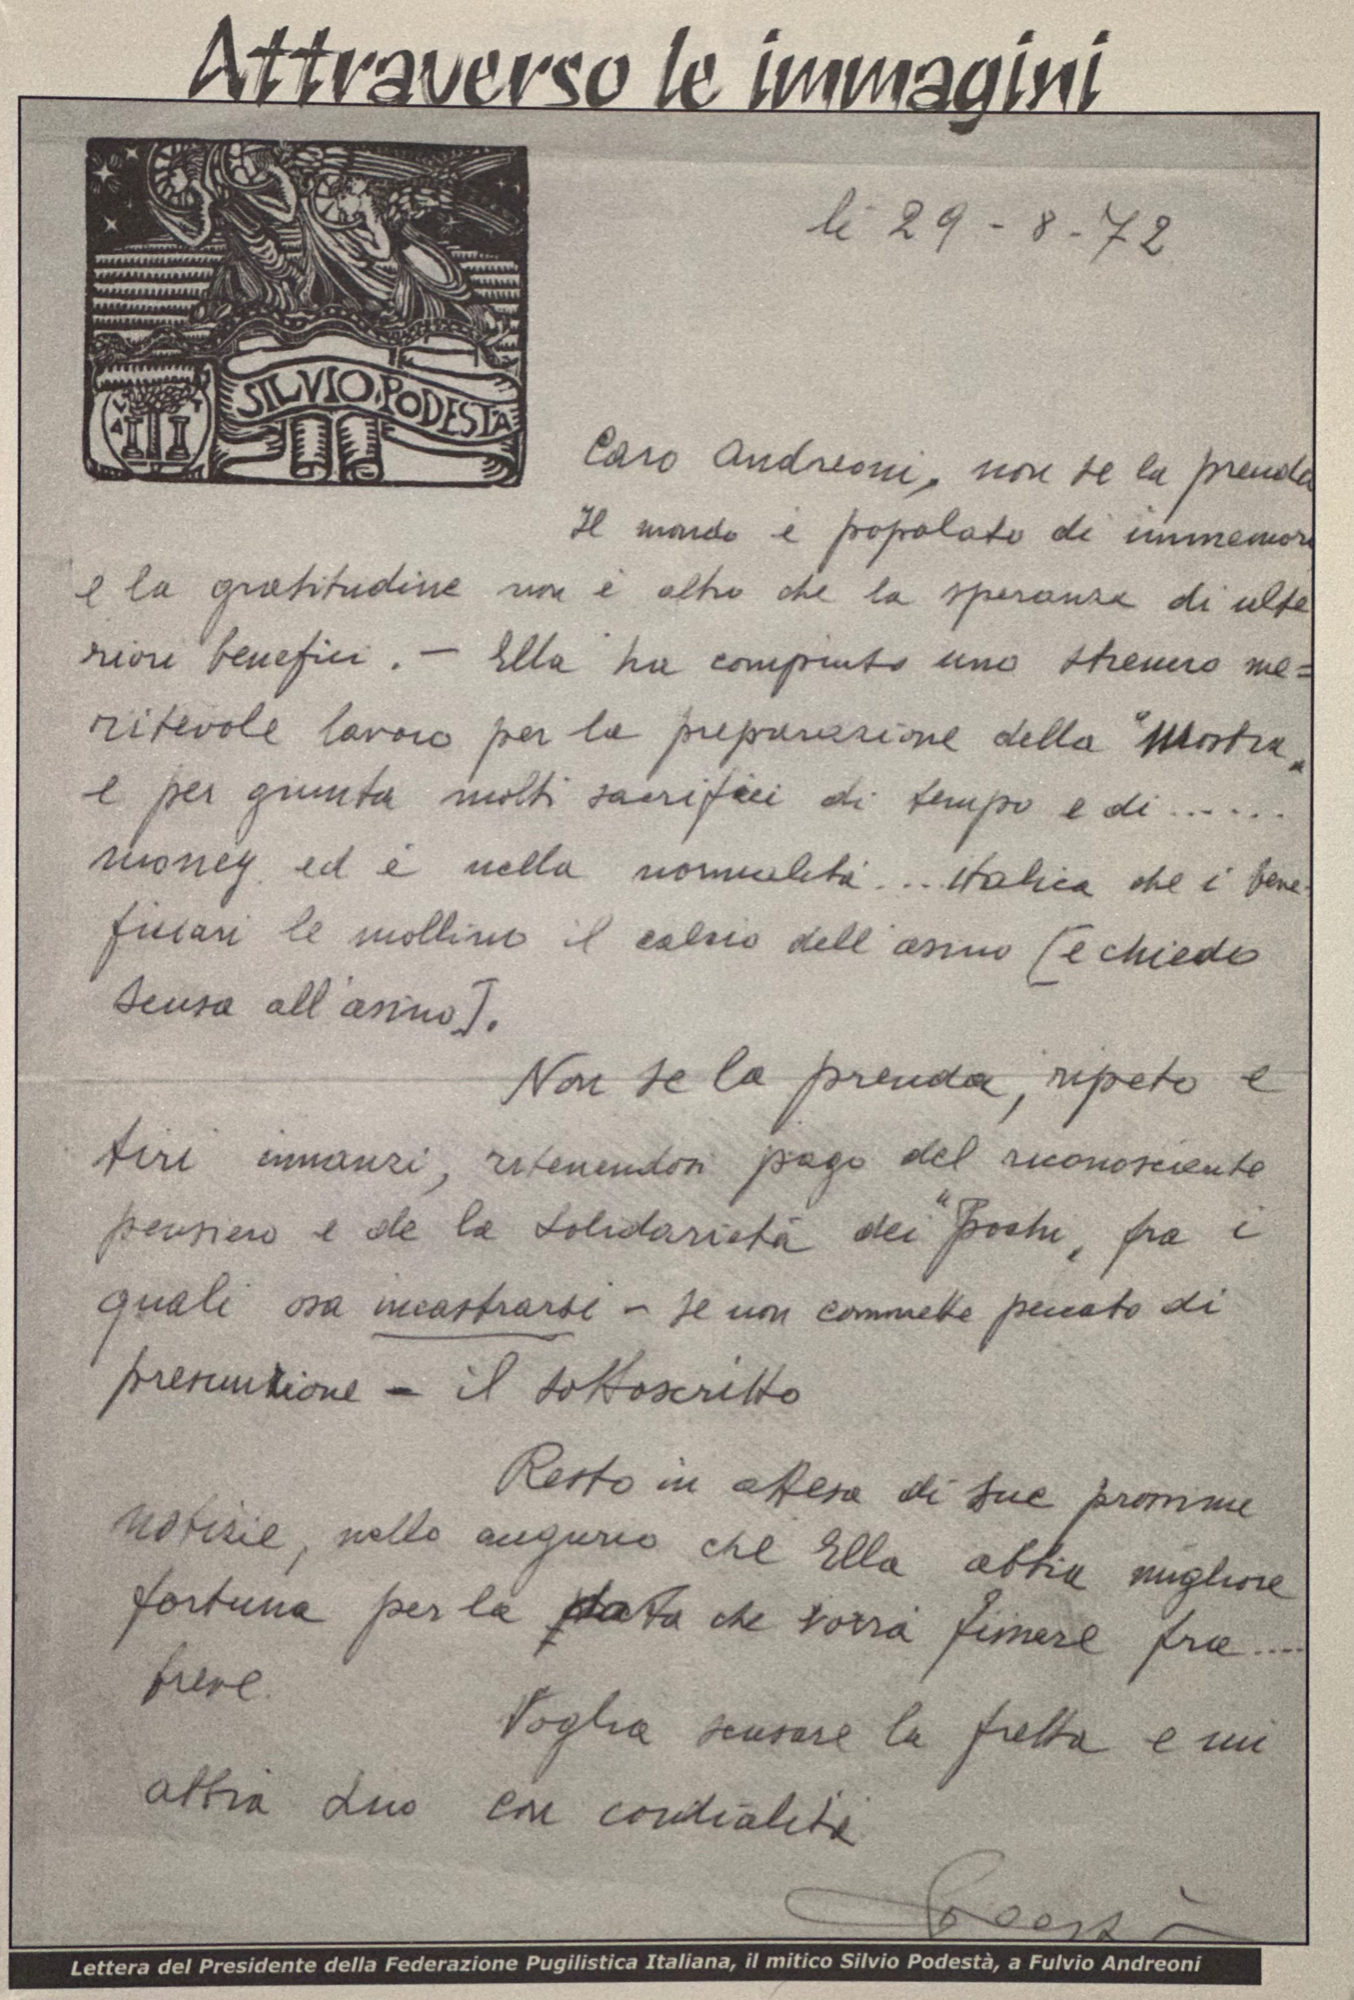 Attraverso le immagini
SILVIO PODESTÀ
li 29-8-72
Caro Andreoni, non se la prenda
Il mondo è popolato di immemori
e la gratitudine non è altro che la speranza di ulte
riori benefici. — Ella ha compiuto uno strenuo me=
ritevole lavoro per la preparazione della "Mostra"
e per giunta molti sacrifici di tempo e di ......
money ed è nella normalità .... italica che i bene-
ficiari le mollino il calcio dell'asino [e chiedo
scusa all'asino].
Non se la prenda, ripeto e
tiri innanzi, ritenendosi pago del riconoscente
pensiero e de la solidarietà dei "Pochi" fra i
quali osa incastrarsi - se non commette peccato di
presunzione - il sottoscritto
Resto in attesa di sue prossime
notizie, nello augurio che Ella abbia migliore
fortuna per la che vorrà fissare fra ....
breve.
Voglia scusare la fretta e mi
abbia suo con cordialità
Podestà
Lettera del Presidente della Federazione Pugilistica Italiana, il mitico Silvio Podestà, a Fulvio Andreoni